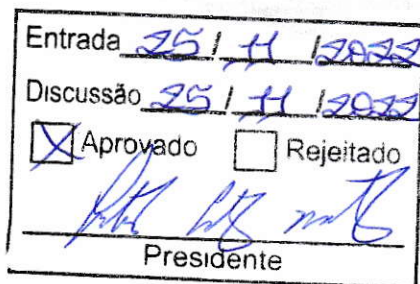 Entrada 25 / 11 / 2022
Discussão 25 / 11 / 2022
X Aprovado Rejeitado
Presidente